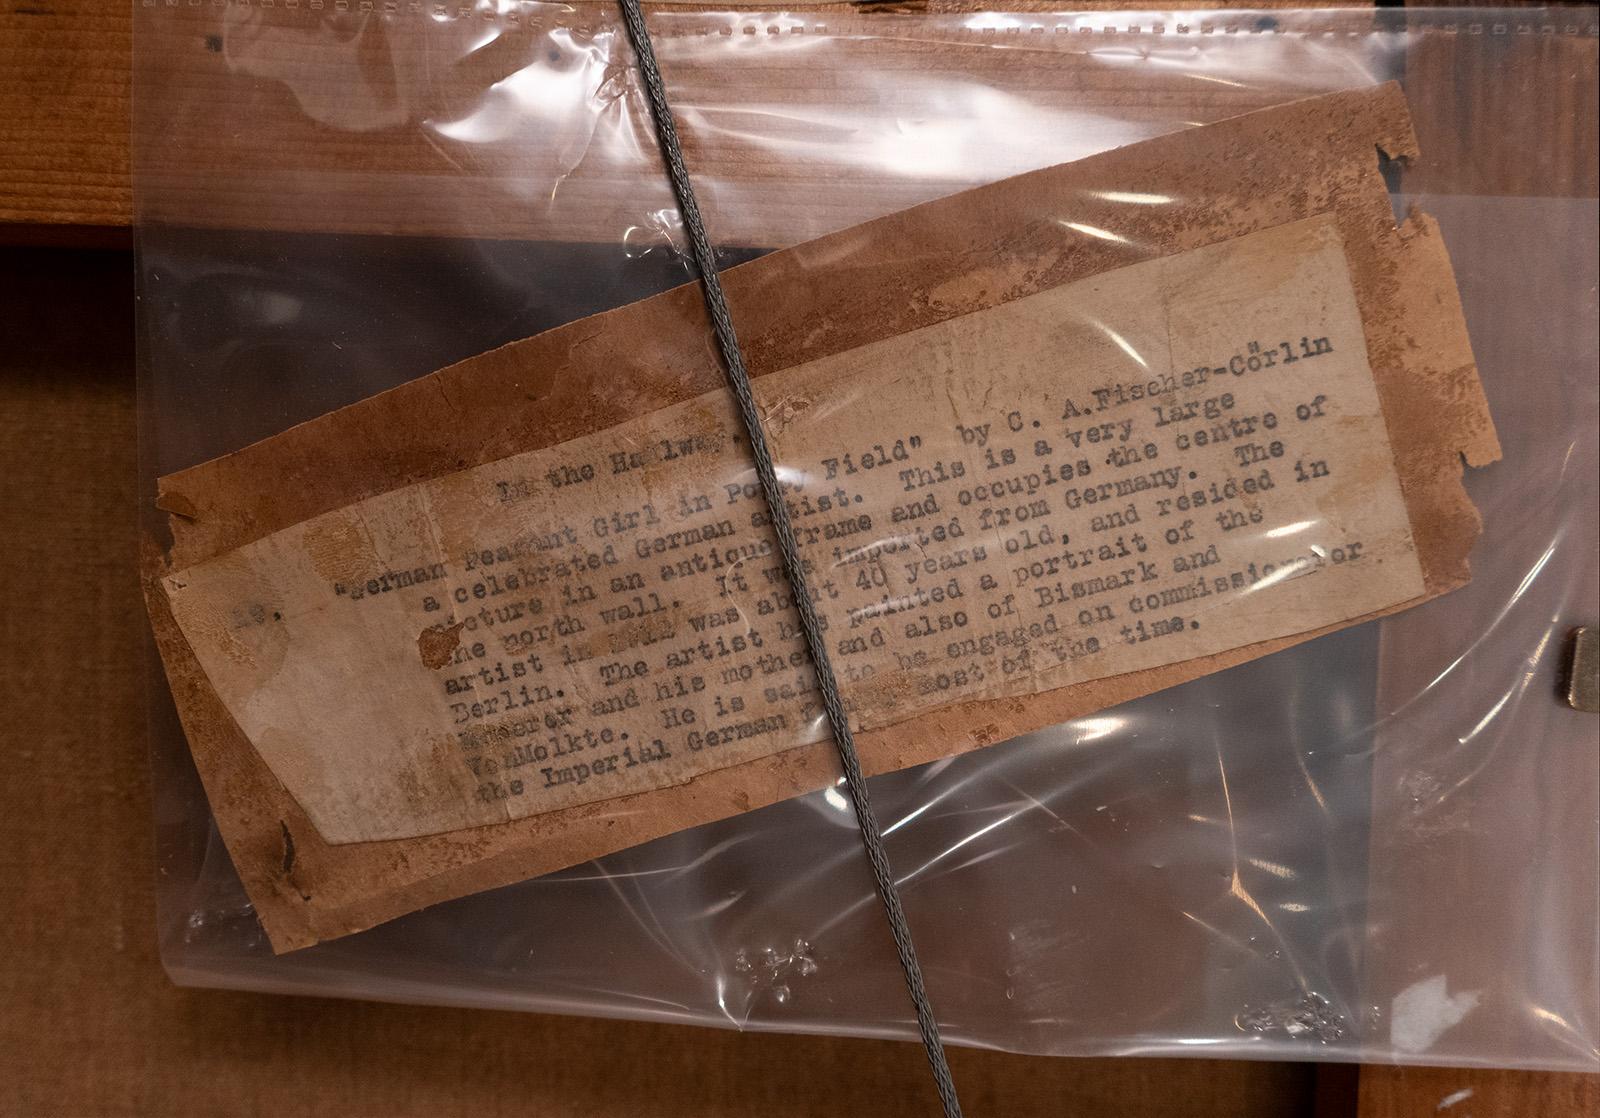 In the Hallway.
"German Peasant Girl in Poppy Field" by C. A.Fischer-Cörlin
a celebrated German artist. This is a very large
picture in an antique frame and occupies the centre of
the north wall. It was imported from Germany. The
artist in was about 40 years old, and resided in
Berlin. The artist has painted a portrait of the
Emperor and his mother and also of Bismark and
VonMolkte. He is said to be engaged on commissions for
the Imperial German most of the time.